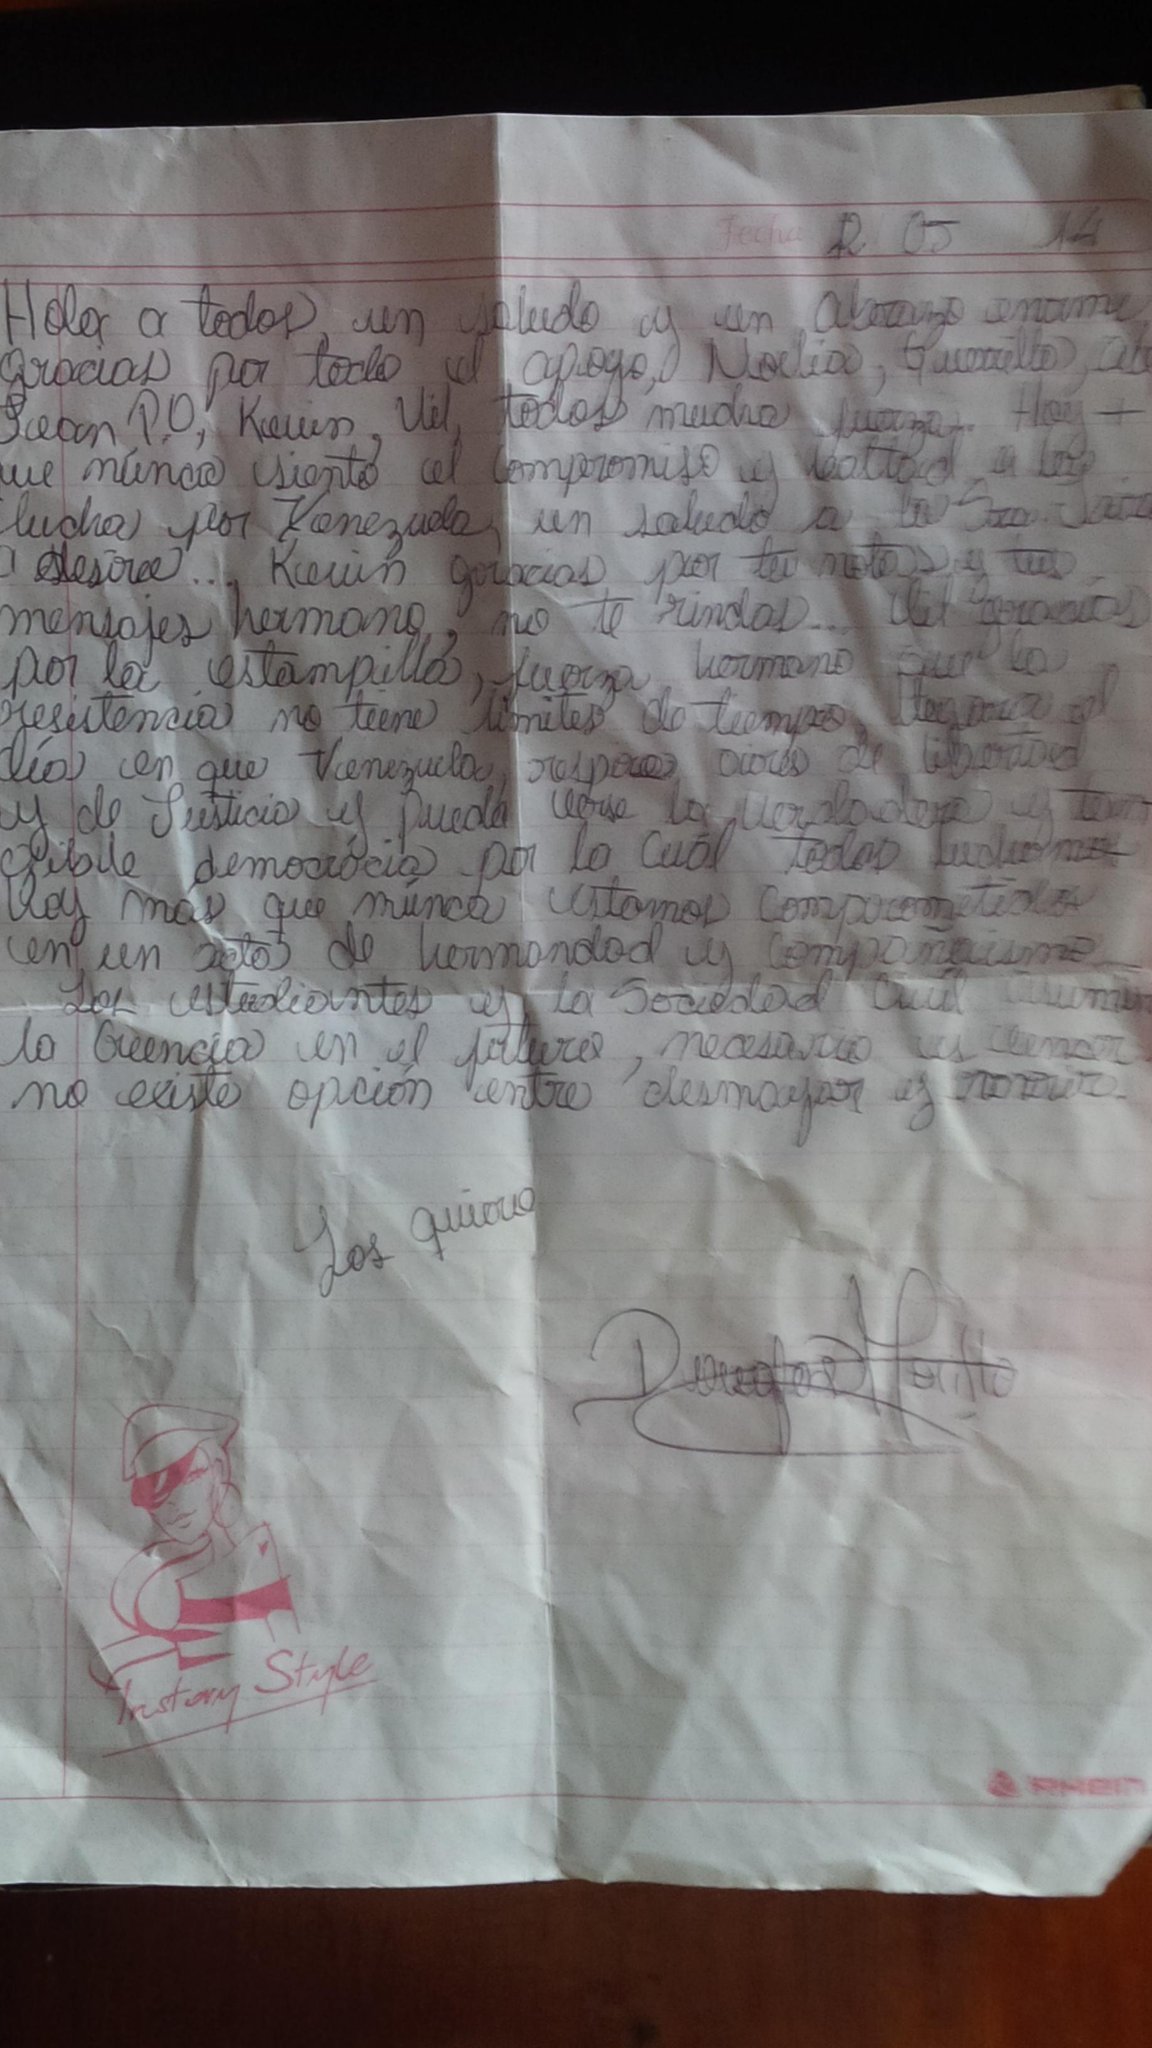 Fecha 12 05 14
Hola a todos, un saludo y un abrazo enorme,
gracias por todo el apoyo, Noelia,
Jean P.O, Kevin, Vil, todos mucha fuerza... Hoy +
que núnca siento el compromiso y lealtad a la
lucha por Venezuela, un saludo a la Sra.
a desire... Kevin gracias por tu notas y tus
mensajes hermano, no te rindas... Vil gracias
por la estampilla, fuerza hermano que la
resistencia no tiene limites de tiempo, llegara el
día en que Venezuela, respire aires de libertad
y de Justicia y pueda verse la verdadera y tan
gible democracia por la Cuál todos luchamos
Hoy más que núnca estamos Comprometidos
en un acto de hermandad y compañerismo
Los estudiantes y la Sociedad Civil asumen
la Creencia en el futuro, necesario es vencer
no existe opción entre desmayar y morir.
Los quiero
Style
RHEIN